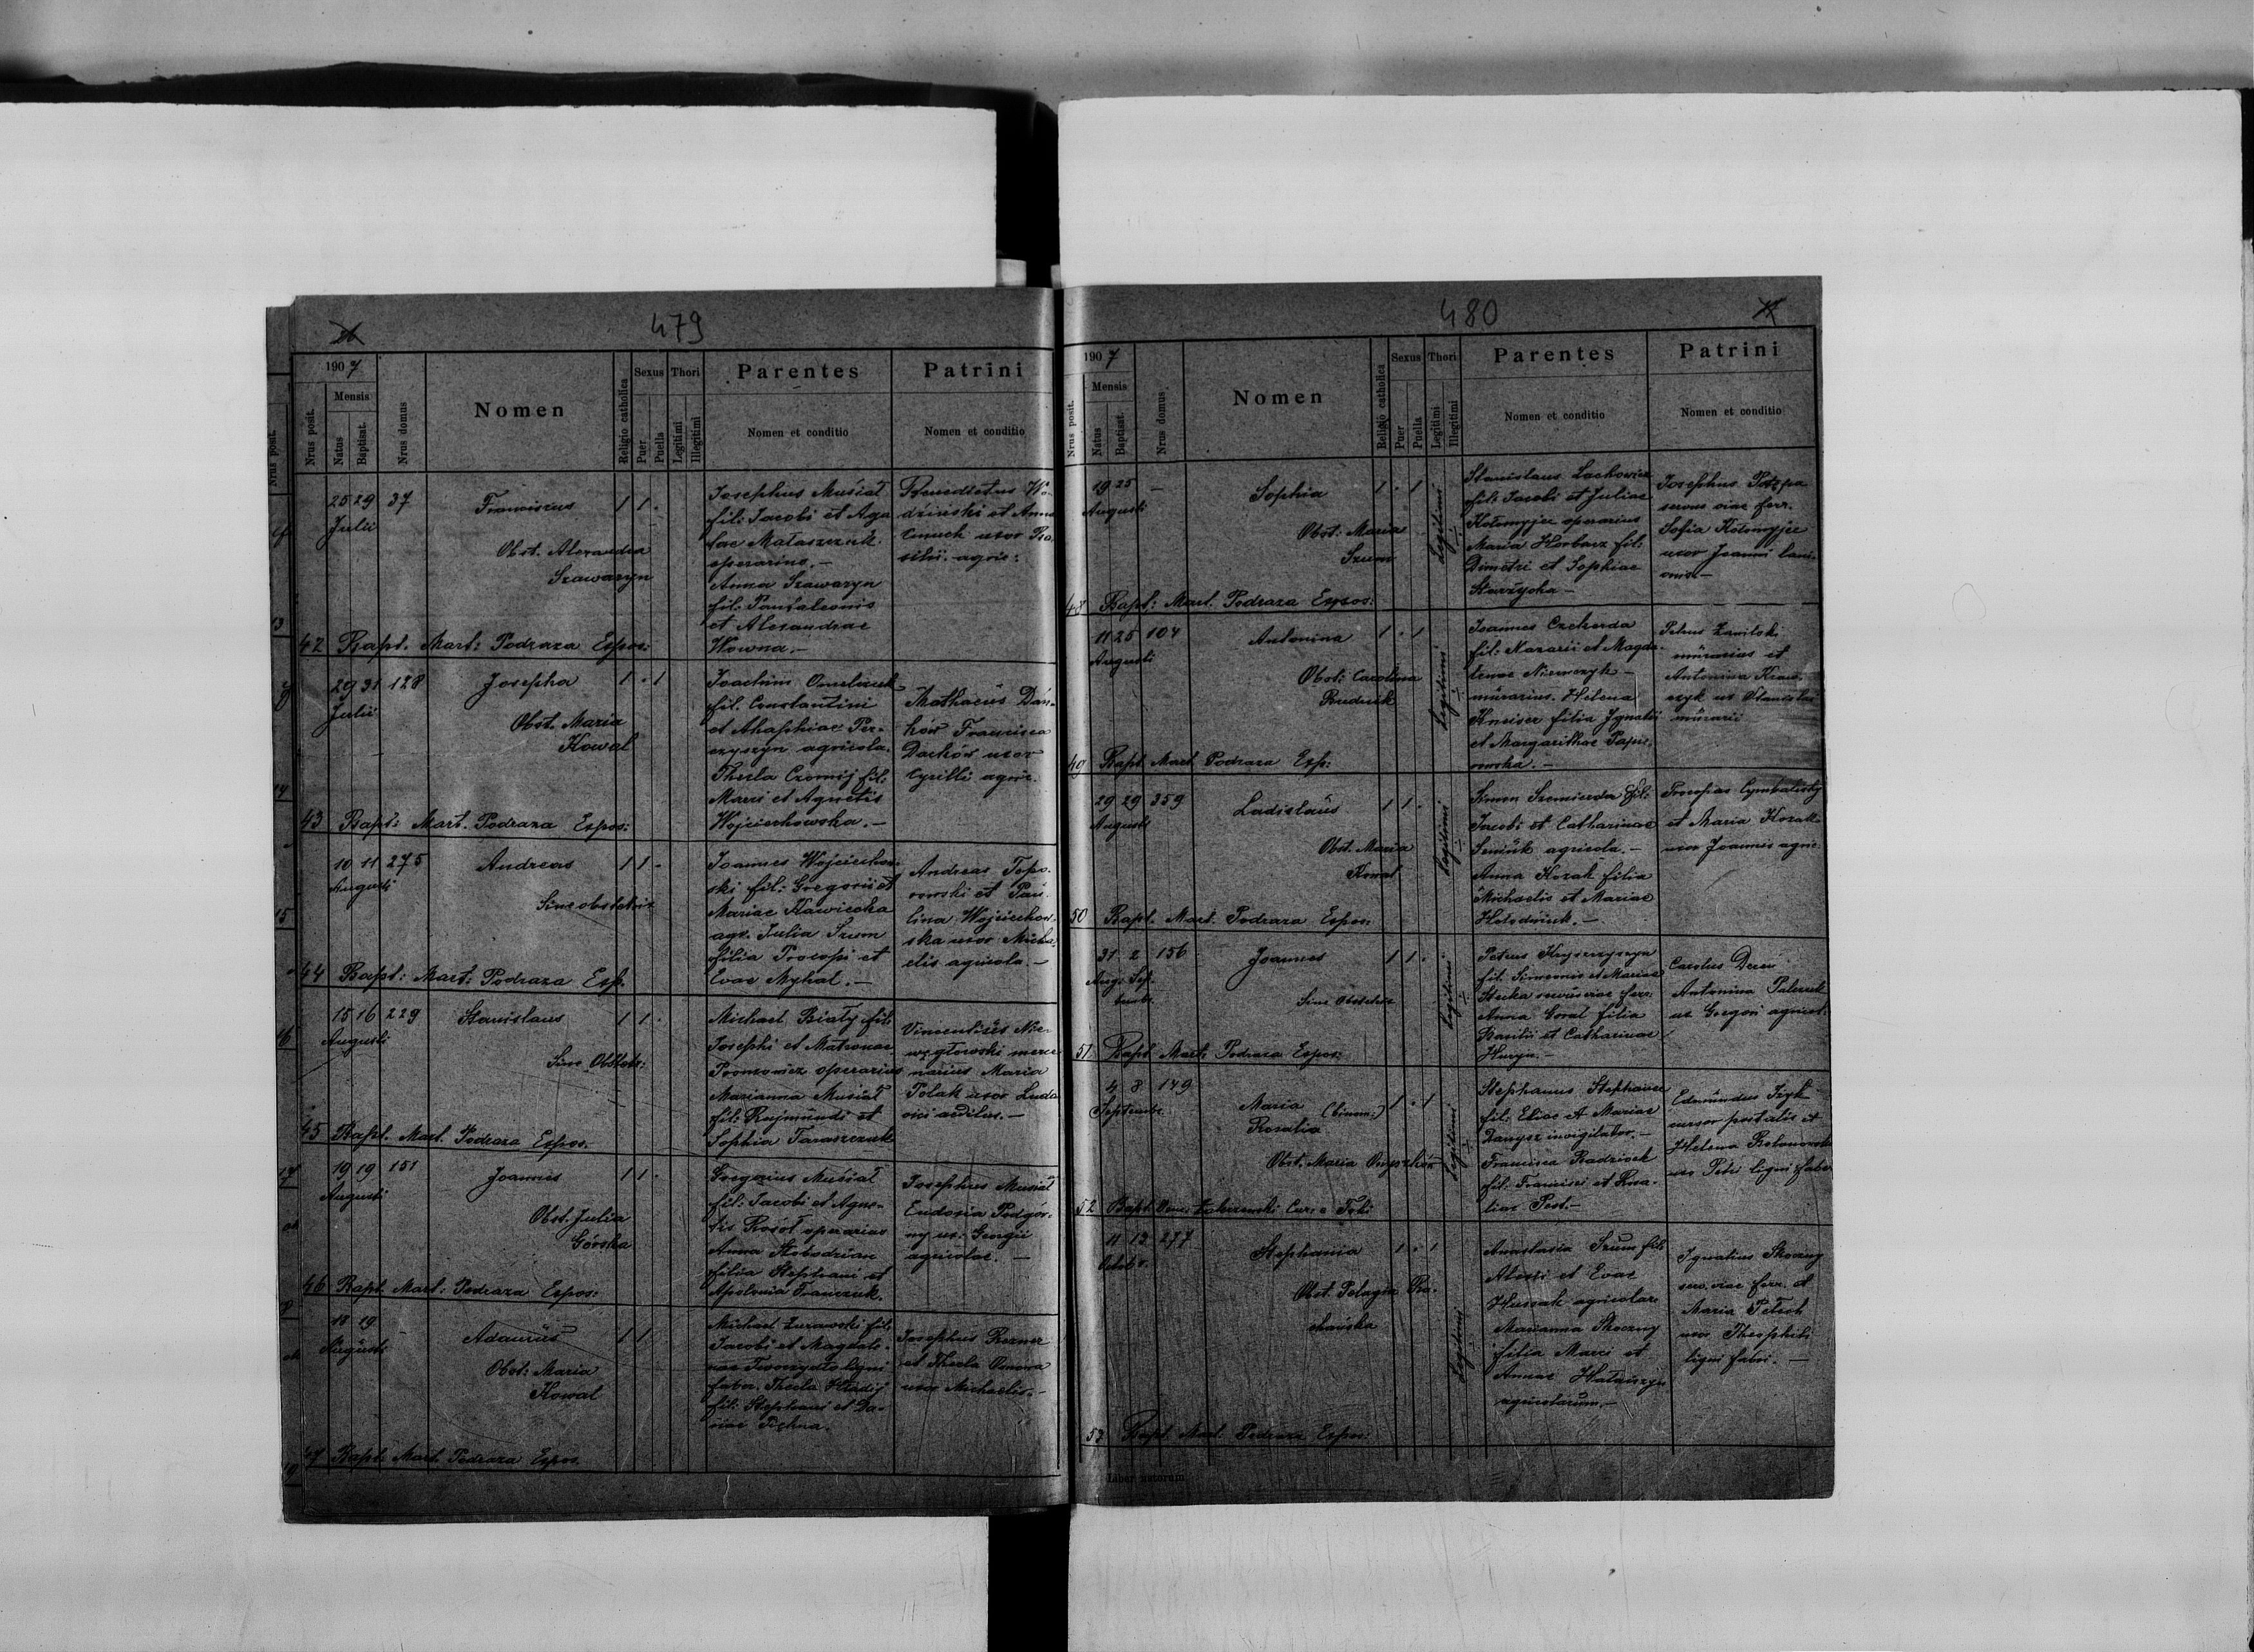 479
1907
Mensis
Nrus posit.
Natus
Baptisat.
Nrus domus
Nomen
Religio catholica
Sexus
Puer
Puella
Thori
Legitimi
Illegitimi
Parentes
Nomen et conditio
Patrini
Nomen et conditio
25 29 37 Franciscus 1 1 .
Julii
Obst. Alexandra
Szawaryn
Josephus Musiał
fil: Jacobi et Aga
operarius. –
Anna Szawaryn
fil: Pantaleonis
et Alexandrae
Wowna. –
Benedictus Wo-
dziński et Anna
uxor Ba
silii agric:
42 Bapt. Mart: Podraza Expos:
29 31 128 Josepha 1 . 1
Julii
Obst. Maria
Kowal
Joachim
fil. Constantini
et Ahaphiae Per-
czyszyn agricola.
Thecla fil:
Marci et Agnetis
Wojciechowska. –
Mathaeus Dań-
ków Francisca
Dacków uxor
Cyrilli agric.
43 Bapt: Mart. Podraza Expos:
10 11 275 Andreas 1 1 .
Augusti
Sine obstetrix
Joannes Wojciechow-
ski fil: Gregorii et
Mariae Kawiecka
agr. Julia Szum
filia Procopi et
Evae Myhal. –
Andreas Topo-
rowski et Pau-
lina Wojciechow-
ska uxor Micha-
elis agricola. –
44 Bapt: Mart: Podraza Exp.
15 16 229 Stanislaus 1 1 .
Augusti
Sine Obstetr:
Michael Biały fil:
Josephi et Matronae
operarius
Marianna Musiał
fil: Rajmundi et
Sophia Taraszczuk
Vincentius Nie-
węgłowski merce
narius Maria
Polak uxor Ludo
vici aedilus. –
45 Bapt. Mart. Podraza Expos.
19 19 151 Joannes 1 1 .
Augusti
Obst. Julia
Górska
Gregorius Musiał
fil: Jacobi et Agne-
tis operarius
Anna Słobodzian
filia Stephani et
Apolonia Franczuk.
Josephus Musiał
Eudoxia Podgór-
ny ux: Georgii
agricolae. –
46 Bapt. Mart: Podraza Expos:
18 19
Augusti
Adamus 1 1
Obst: Maria
Kowal
Michael Żurawski fil:
Jacobi et Magdale-
nae ligni
faber. Thecla Hładij
fil: Stephani et Da-
riae
Josephus
et Thecla
uxor Michaelis. –
47 Bapt: Mart. Podraza Expos.
480
1907
Mensis
Nrus posit.
Natus
Baptisat.
Nrus domus
Nomen
Religio catholica
Sexus
Puer
Puella
Thori
Legitimi
Illegitimi
Parentes
Nomen et conditio
Patrini
Nomen et conditio
19 25 – Sophia 1 . 1
Augusti
Obst: Maria
Szum
Legitimi
Stanislaus Lackowicz
fil: Jacobi et Juliae
Kołomyjec operarius
Maria Horbacz fil:
Dimetri et Sophiae
–
Josephus
servus viae ferr.
Sofia Kołomyjec
uxor Joanni
48 Bapt: Mart. Podraza Expos:
11 25 104 Antonina 1 . 1
Augusti
Obst: Carolina
Budnik
Legitimi
Joannes Czeherda
fil: Nazarii et Magda-
lenae Niemczyk –
murarius. Helena
Kneiser filia Ignatii
et Margarithae
Petrus
murarius et
Antonina Kraw-
czyk ux Stanislai
murarii
49 Bapt. Mart. Podraza Exp:
29 29 359 Ladislaus 1 1 .
Augusti
Obst. Maria
Kowal
Legitimi
Simon fil:
Jacobi et Catharinae
agricola. –
Anna Kozak filia
Michaelis et Mariae
Hołodniuk. –
Procopius Cymbalisty
et Maria Kozak
uxor Joannis agric.
50 Bapt. Mart. Podraza Expos:
31 2 156 Joannes 1 1 .
Aug. Sep-
tembr.
Sine Obstetrix
Legitimi
Petrus Kryszczyszyn
fil. Simeonis et Mariae
servus viae ferr:
Anna Goral filia
Basilii et Catharinae
–
Carolus
Antonina
ux Gregori agricol:
51 Bapt. Mart. Podraza Expos:
4 8 149 Maria (binom:) 1 . 1
Septembr.
Rosalia
Obst. Maria
Legitimi
Stephanus
fil. Eliae et Mariae
Danysz invigilator. –
Francisca
fil: Francisci et Rosa-
liae –
Edmundus
cursor postalis et
Helena
uxor Petri ligni fabr.
52 Bapt.
11 13 277 Stephania 1 . 1
Octobr.
Obst. Pelagia
Legitimi
Anastasia Szum fil:
Alexii et Evae
Hussak agricolae
Marianna Skoczny
filia Marci et
Annae
agricolarum. –
Ignatius Skoczny
serv. viae ferr. et
Maria
uxor Theophili
ligni fabri. –
53 Bapt. Mart. Podraza Expos:
Liber natorum